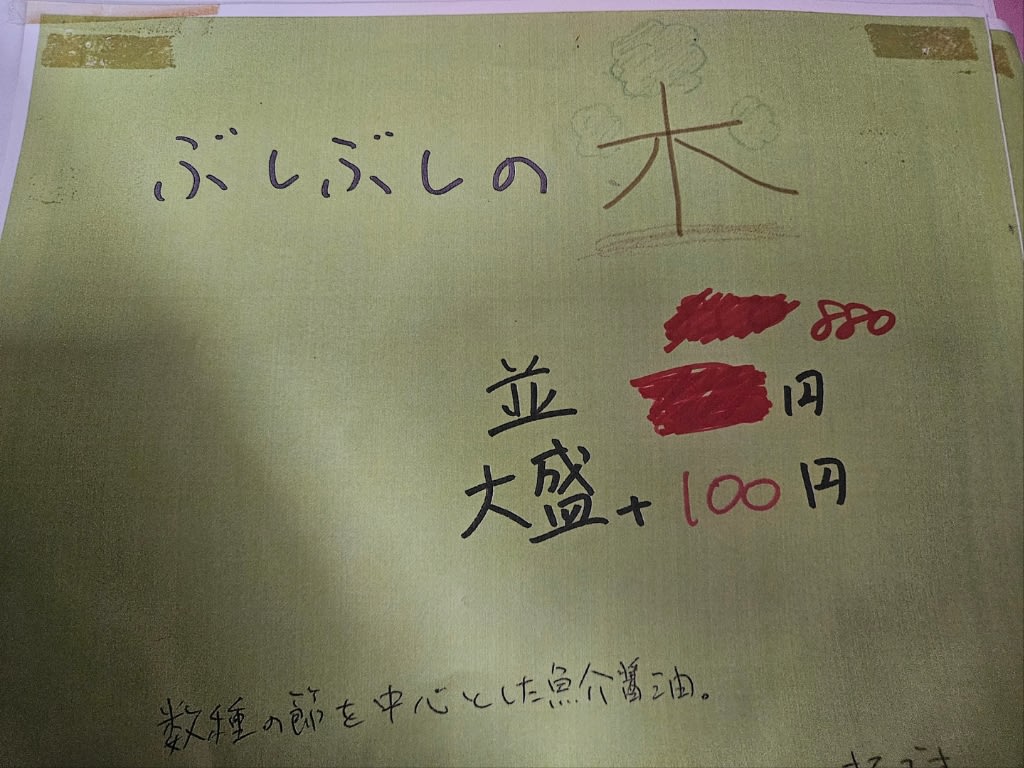 ぶしぶしの木
880
並 円
大盛+100円
数種の節を中心とした魚介醤油。